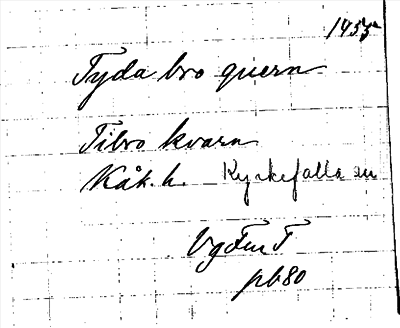 1455
Tyda bro quern
Tibro kvarn
Kåk. h. Kyrkefalla sn
pb 80